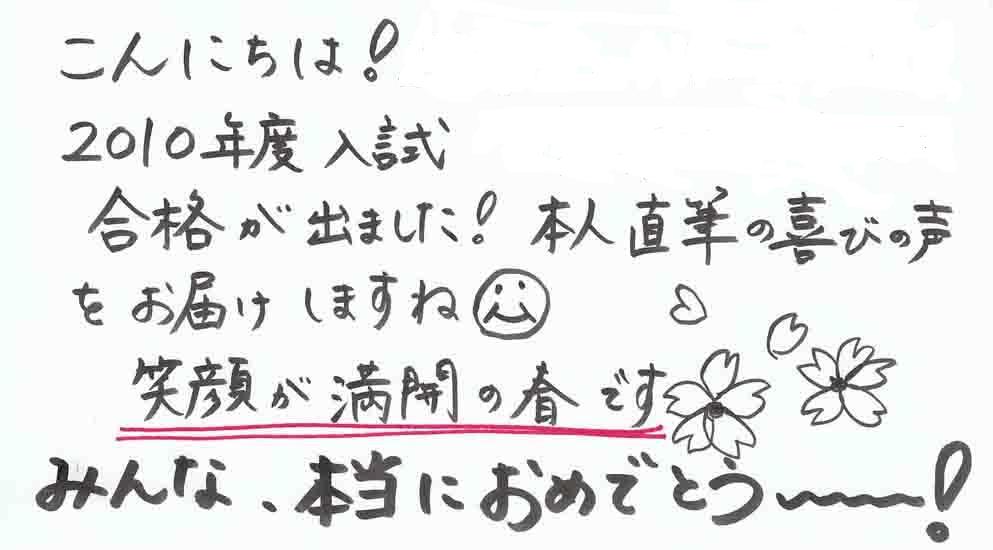 こんにちは！
2010年度 入試
合格が出ました！ 本人直筆の喜びの声
をお届けしますね
笑顔が満開の春です
みんな、本当におめでとう〜！